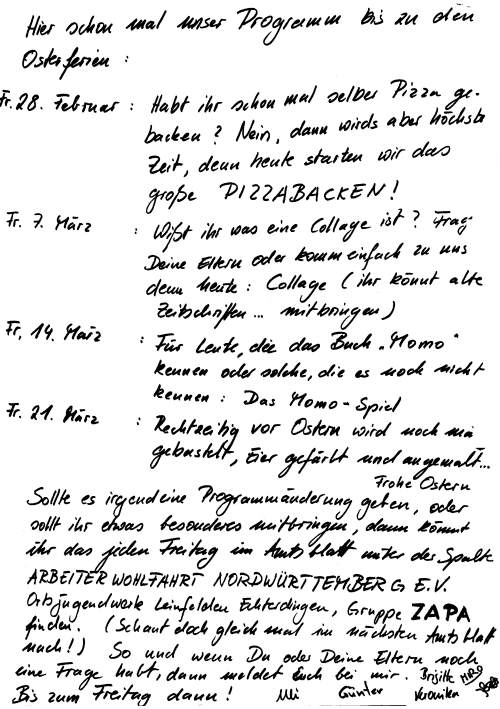 Hier schon mal unser Programm bis zu den
Osterferien :
Fr. 28. Februar : Habt ihr schon mal selber Pizza ge-
backen ? Nein, dann wirds aber höchste
Zeit, denn heute starten wir das
große PIZZABACKEN !
Fr. 7. März : Wißt ihr was eine Collage ist ? Frag
Deine Eltern oder komm einfach zu uns
denn heute : Collage ( ihr könnt alte
Zeitschriften ... mitbringen )
Fr, 14. März : Für Leute, die das Buch „Momo"
kennen oder solche, die es noch nicht
kennen : Das Momo - Spiel
Fr. 21. März : Rechtzeitig vor Ostern wird noch mal
gebastelt, Eier gefärbt und angemalt...
Frohe Ostern
Sollte es irgendeine Programmänderung geben, oder
sollt ihr etwas besonderes mitbringen, dann könnt
ihr das jeden Freitag im Amtsblatt unter der Spalte
ARBEITERWOHLFAHRT NORDWÜRTTEMBERG E.V.
Ortsjugendwerk Leinfelden Echterdingen, Gruppe ZAPA
finden. ( Schaut doch gleich mal im nächsten Amtsblatt
nach ! ) So und wenn Du oder Deine Eltern noch
eine Frage habt, dann meldet Euch bei mir. Brigitte
Bis zum Freitag dann ! Uli Günter Veronika